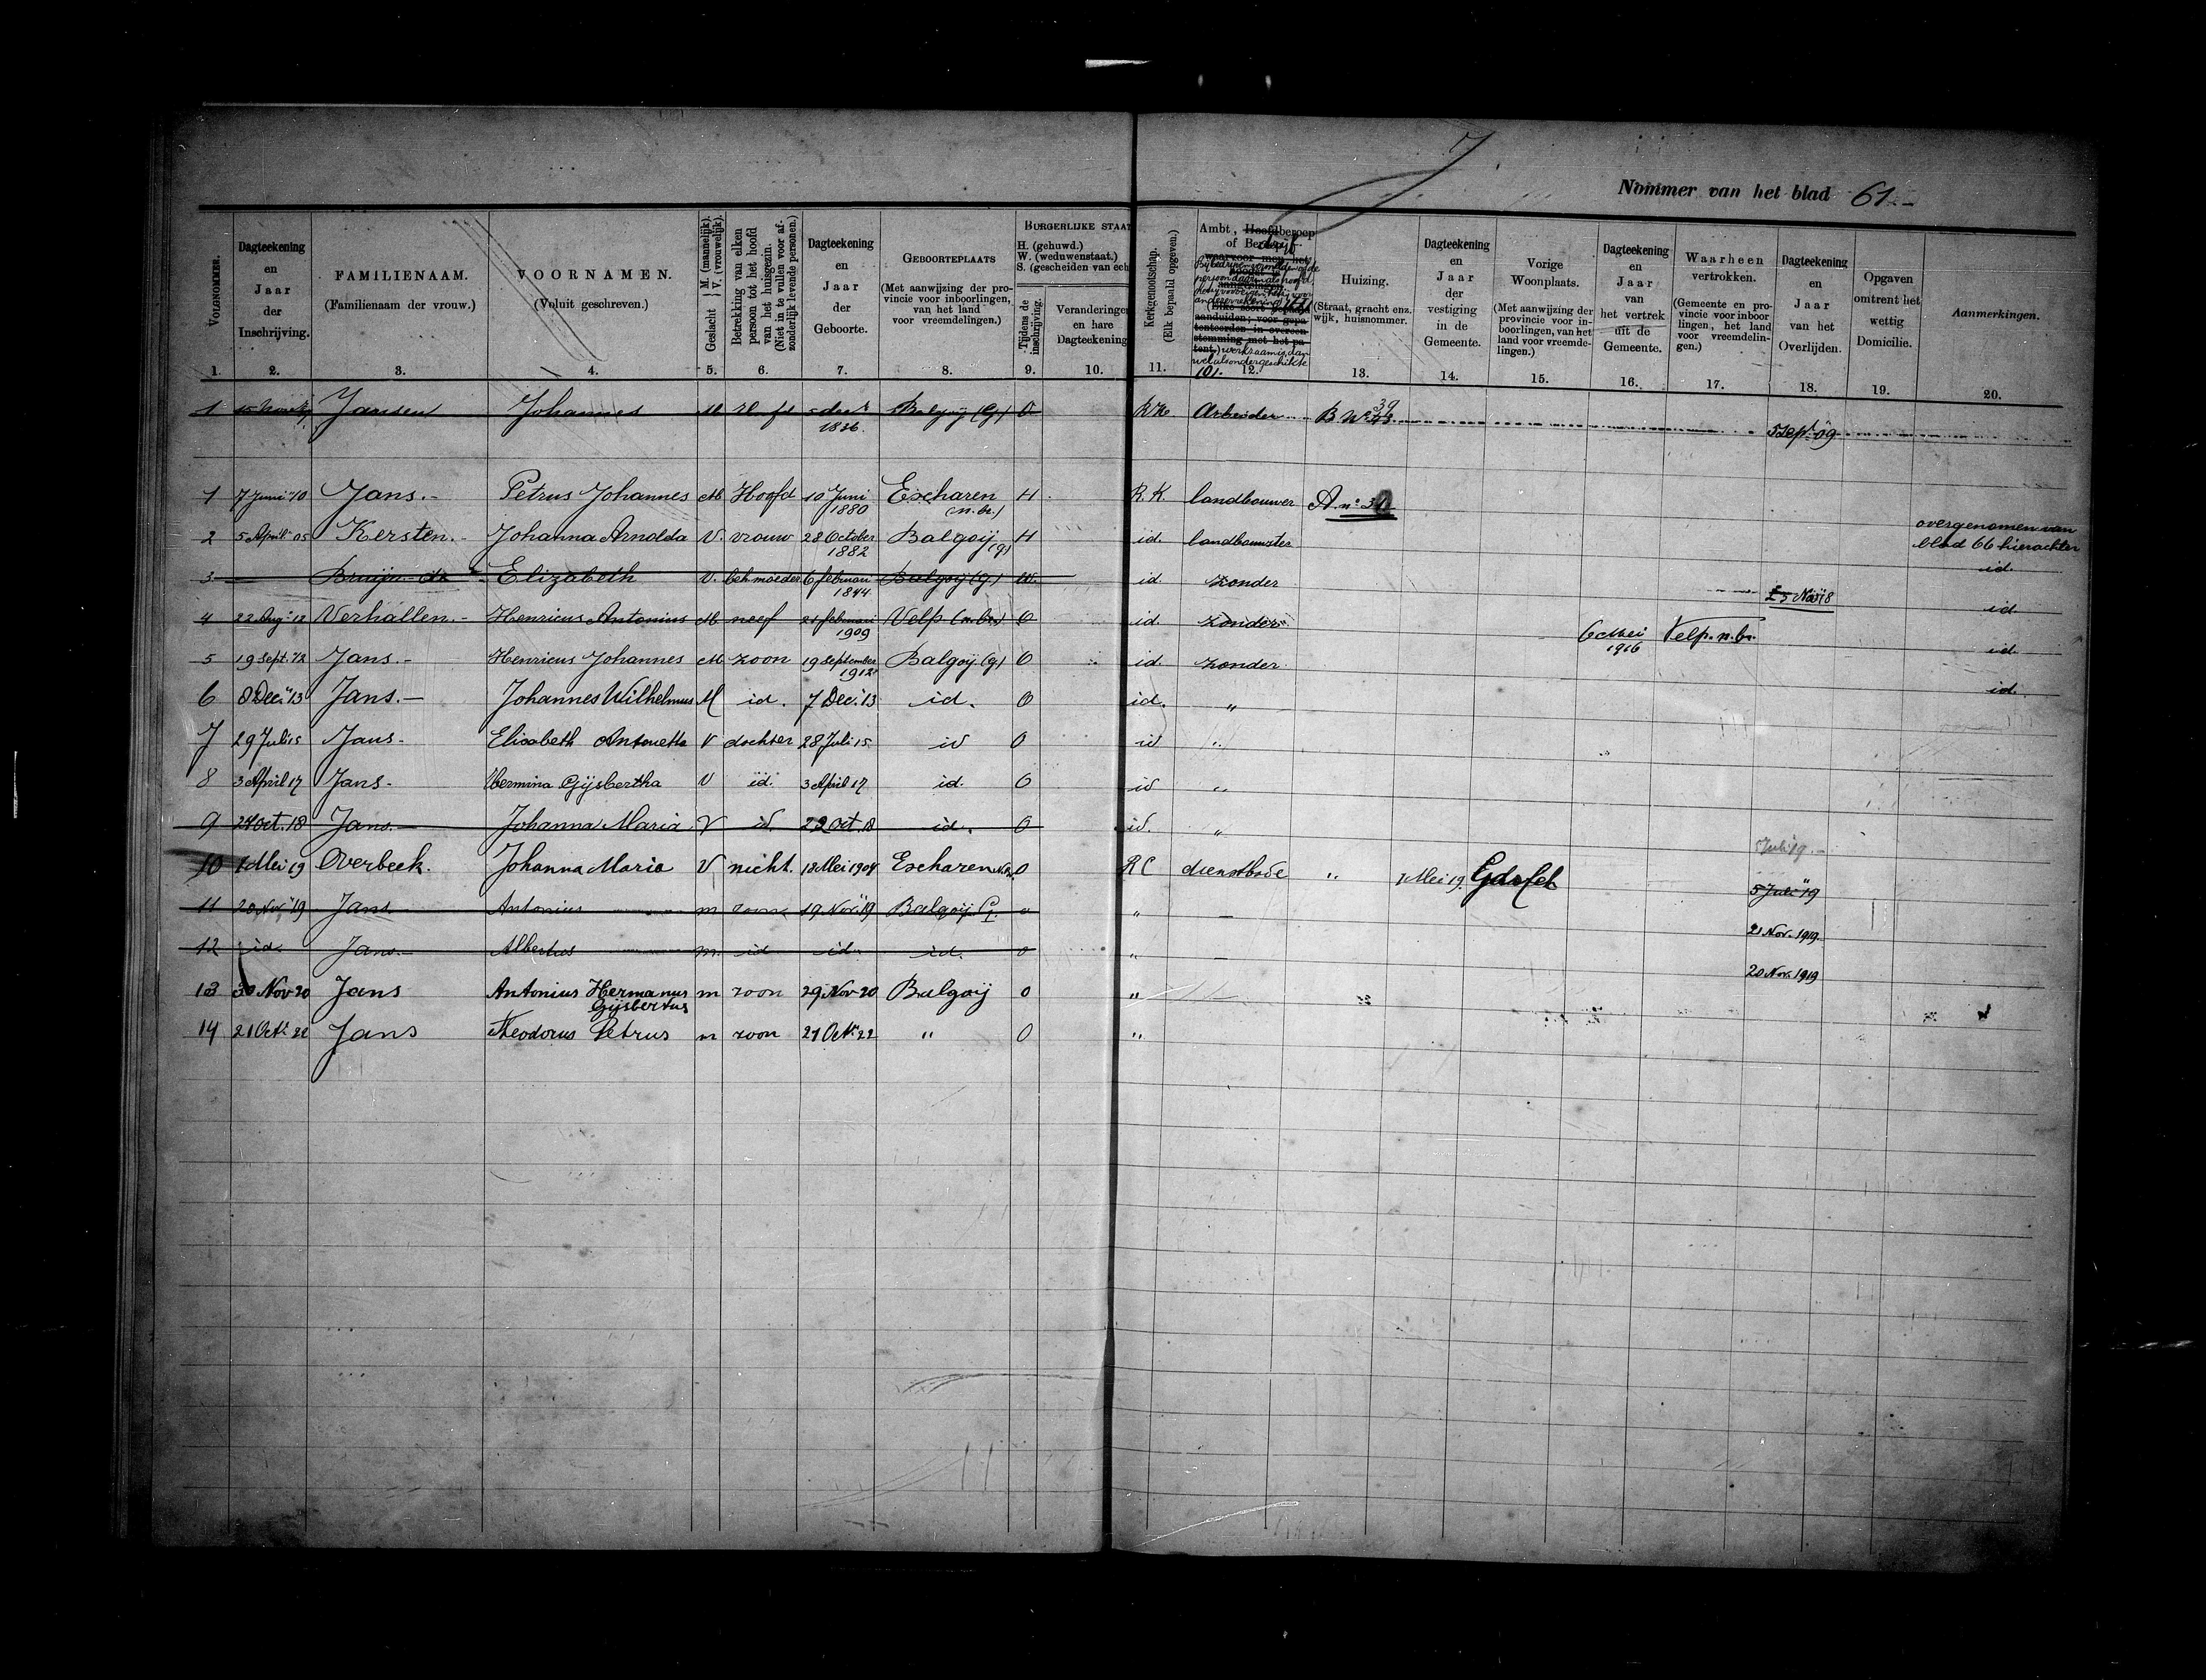 J.
Nommer van het blad 61.-
VOLGNOMMER.
Dagteekening en Jaar der Inschrijving.
FAMILIENAAM. (Familienaam der vrouw.)
VOORNAMEN. (Voluit geschreven.)
Geslacht M. (mannelijk). V. (vrouwelijk).
Betrekking van elken persoon tot het hoofd van het huisgezin. (Niet in te vullen voor afzonderlijk levende personen.)
Dagteekening en Jaar der Geboorte.
GEBOORTEPLAATS (Met aanwijzing der provincie voor inboorlingen, van het land voor vreemdelingen.)
BURGERLIJKE STAAT
H. (gehuwd.)
W. (weduwenstaat.)
S. (gescheiden van ech
Tijdens de inschrijving.
Veranderingen en hare Dagteekening
Kerkgenootschap. (Elk bepaald opgeven.)
Ambt, Hoofdberoep of Bedrijf
Huizing. (Straat, gracht enz. wijk, huisnommer.
Dagteekening en Jaar der vestiging in de Gemeente.
Vorige Woonplaats. (Met aanwijzing der provincie voor inboorlingen, van het land voor vreemdelingen.)
Dagteekening en Jaar van het vertrek uit de Gemeente.
Waarheen vertrokken. (Gemeente en provincie voor inboorlingen, het land voor vreemdelingen.)
Dagteekening en Jaar van het Overlijden.
Opgaven omtrent het wettig Domicilie.
Aanmerkingen.
1. 2. 3. 4. 5. 6. 7. 8. 9. 10. 11. 12. 13. 14. 15. 16. 17. 18. 19. 20.
1 Jansen Johannes M Hoofd 5 decr 1826 Balgoij (G) O RK Arbeider B No 39 5 Sept. 09
1 7 Juni '10 Jans.- Petrus Johannes M Hoofd 10 Juni 1880 Escharen (n.br.) H R.K. landbouwer A. no 3
2 5 April 05 Kersten.- Johanna Arnolda V. vrouw 28 October 1882 Balgoij (g) H id. landbouwster overgenomen van blad 66 hierachter
3 Bruijn - de - Elizabeth V. beh moeder 6 februari 1844 Balgoij (g.) W. id. zonder 25 Nov 18 id.
4 22 Aug 12 Verhallen.- Henricus Antonius M neef 21 februari 1909 Velp (n.br.) O id. zonder 6 Mei 1916 Velp. n.br. id.
5 19 Sept. 12 Jans.- Henricus Johannes M zoon 19 September 1912 Balgoij (g) O id. zonder id.
6 8 Dec. '13 Jans.- Johannes Wilhelmus M id. 7 Dec. '13 id. O id. " id.
7 29 Juli 15 Jans- Elisabeth Antonetta V dochter 28 Juli 15 id O id "
8 3 April 17 Jans- Hermina Gijsbertha V id. 3 April 17 id. O id "
9 24 Oct. 18 Jans.- Johanna Maria V id. 22 Oct. 18 id. O id. " Juli 19.-
10 1 Mei 19 Overbeek. Johanna Maria V nicht. 18 Mei 1904 Escharen N.B. O RC dienstbode " 1 Mei 19 5 Juli '19
11 20 Nov. '19 Jans. Antonius m zoon 19 Nov. '19 Balgoij G. o " - 21 Nov. 1919
12 id Jans.- Albertus m. id id. id. o " - 20 Nov. 1919
13 30 Nov 20 Jans Antonius Hermanus Gijsbertus m zoon 29 Nov 20 Balgoij o "
14 21 Oct. 22 Jans Theodorus Petrus m zoon 21 Oct. 22 " O "